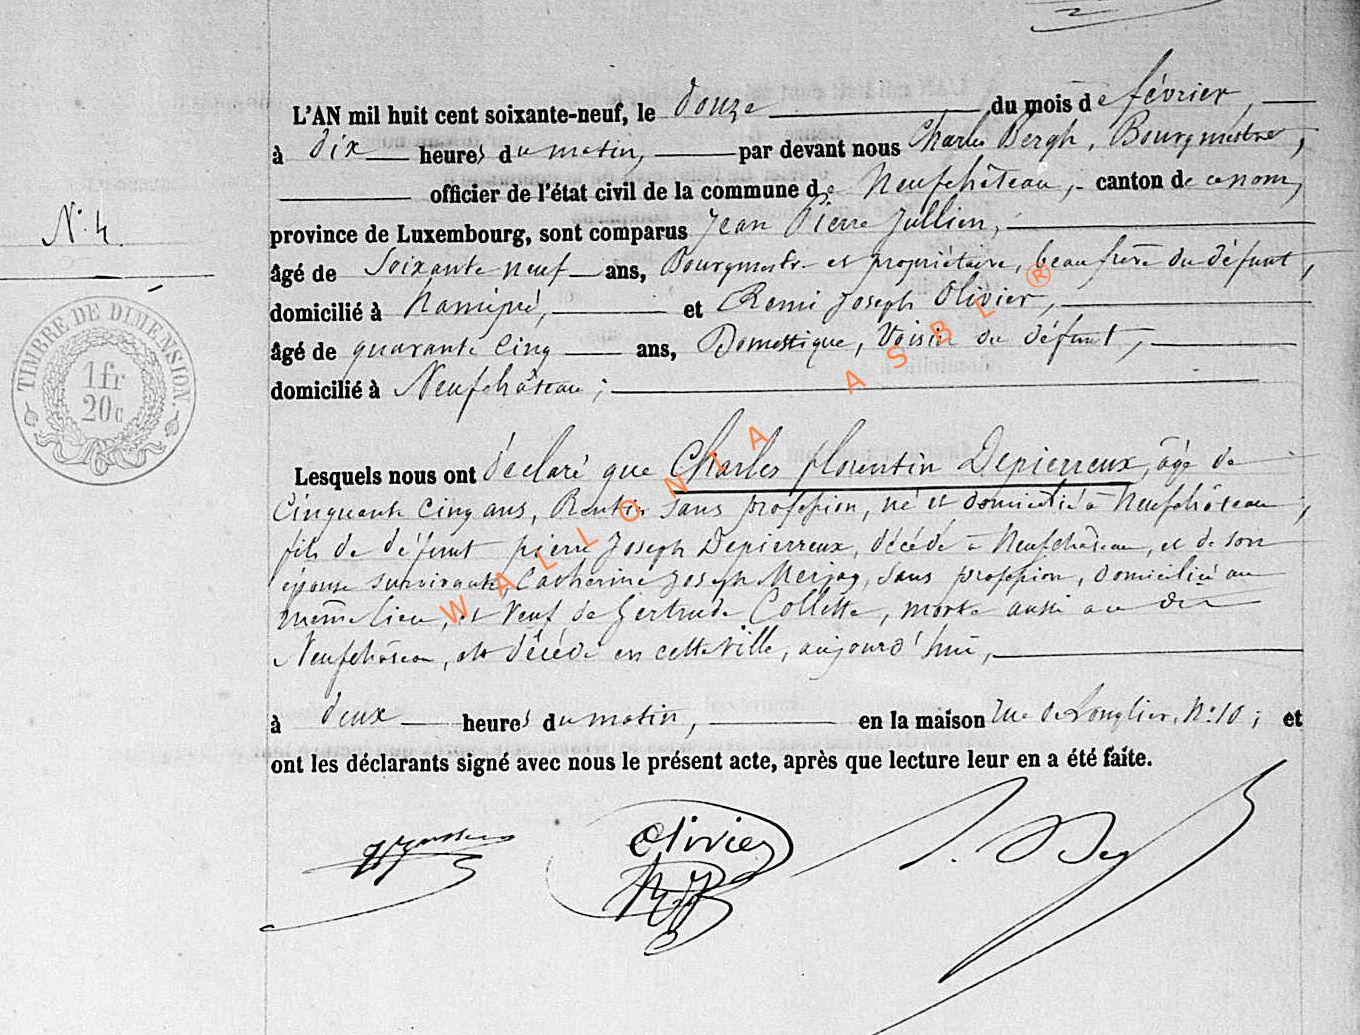 L'AN mil huit cent soixante-neuf, le douze du mois de février,
à dix heures du matin, par devant nous Charles Bergh, Bourgmestre,
officier de l'état civil de la commune de Neufchâteau, canton de ce nom,
N° 4.
province de Luxembourg, sont comparus Jean Pierre Jullien,
âgé de Soixante neuf ans, Bourgmestre et propriétaire, beau frère du défunt,
domicilié à Hamipré, et Remi Joseph Olivier,
âgé de quarante cinq ans, Domestique, Voisin du défunt,
domicilié à Neufchâteau;
TIMBRE DE DIMENSION
1 fr
20 c
Lesquels nous ont déclaré que Charles florentin Depierreux, âgé de
Cinquante cinq ans, Rentier sans profession, né et domicilié à Neufchâteau,
fils de défunt pierre Joseph Depierreux, décédé à Neufchâteau, et de son
épouse survivante, Catherine Joseph Merjay, sans profession, domiciliée au
même lieu, et Veuf de Gertrude Collette, morte aussi au dit
Neufchâteau, est décédé en cette Ville, aujourd'hui,
à deux heures du matin, en la maison rue de Longlier, N° 10; et
ont les déclarants signé avec nous le présent acte, après que lecture leur en a été faite.
Olivier
RJ
WALLONIA ASBL ®